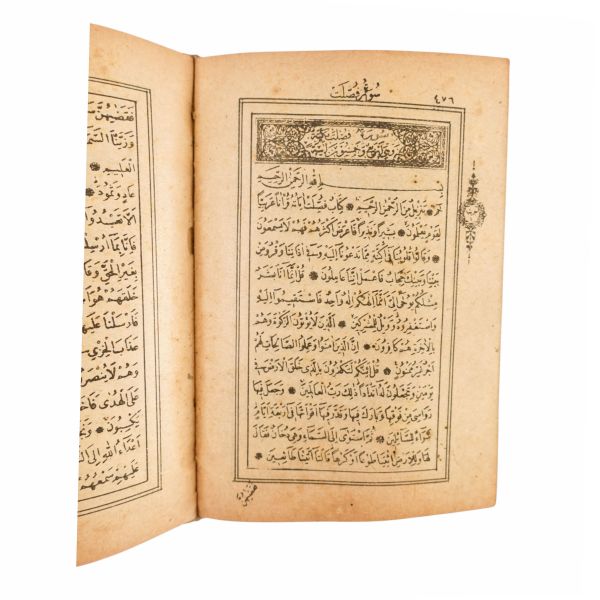 ٤٧٦ سورة فصلت
سورة فصلت مكية
بسم الله الرحمن الرحيم
حم ۞ تنزيل من الرحمن الرحيم ۞ كتاب فصلت اياته قرانا عربيا
لقوم يعلمون ۞ بشيرا ونذيرا فاعرض اكثرهم فهم لا يسمعون
۞ وقالوا قلوبنا في اكنة مما تدعونا اليه وفي اذاننا وقر ومن
بيننا وبينك حجاب فاعمل اننا عاملون ۞ قل انما انا بشر
مثلكم يوحى الي انما الهكم اله واحد فاستقيموا اليه
واستغفروه وويل للمشركين ۞ الذين لا يؤتون الزكوة وهم
بالاخرة هم كافرون ۞ ان الذين امنوا وعملوا الصالحات لهم
اجر غير ممنون ۞ قل ائنكم لتكفرون بالذي خلق الارض في
يومين وتجعلون له اندادا ذلك رب العالمين ۞ وجعل فيها
رواسي من فوقها وبارك فيها وقدر فيها اقواتها في اربعة ايام
سواء للسائلين ۞ ثم استوى الى السماء وهي دخان فقال
لها وللارض ائتيا طوعا او كرها قالتا اتينا طائعين ۞
فقضيهن
فقضيهن
وزينا السم
العليم ۞
عاد وثمود ۞
الا تعبدوا ا
فانا بما ارسل
بغير الحق وقا
خلقهم هو ا
فارسلنا عليه
عذاب الخزي
وهم لا ينصر
على الهدى فا
يكسبون ۞
اعداء الله الى ال
عليهم سمعهم